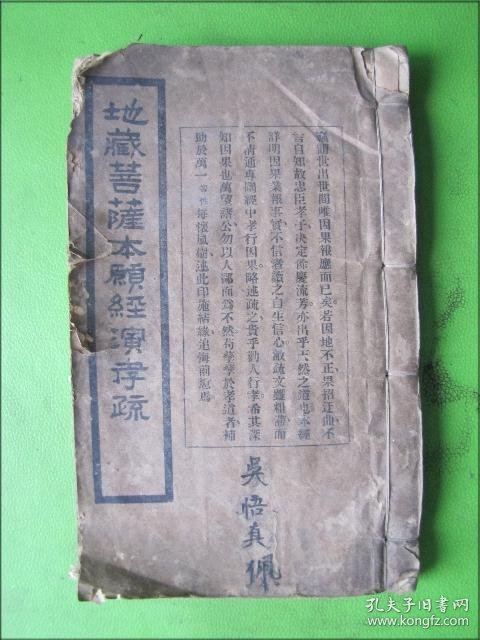 地藏菩薩本願經演孝疏
竊謂世出世間唯因果報應而已矣若因地不正果招迂曲不
言自知故忠臣孝子決定餘慶流芳亦出乎天然之道也本經
詳明因果業報事實不信者讀之自生信心敝疏文雖粗淺而
不淸通專闡經中孝行因果略述疏之貴乎勸人行孝備其深
知因果也萬望諸公勿以人鄙而爲不然苟孳孳於孝道者補
助於萬一等性每懷風樹述此印施結緣追悔前愆焉
吳悟真佩
孔夫子旧书网
www.kongfz.com